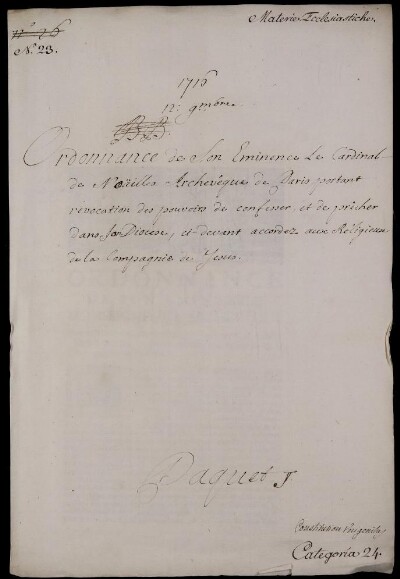 Materie Ecclesiastiche
n.° 26
N.° 23.
1716
12: 9mbre
Ordonnance de Son Eminence Le Cardinal
de Noailles Archevêque de Paris portant
revocation des pouvoirs de confesser et de prêcher
dans son Diocese, cy-devant accordez aux Religieux
de la Compagnie de Jesus.
Paquet J
Constitution Unigenitus
Categoria 24.